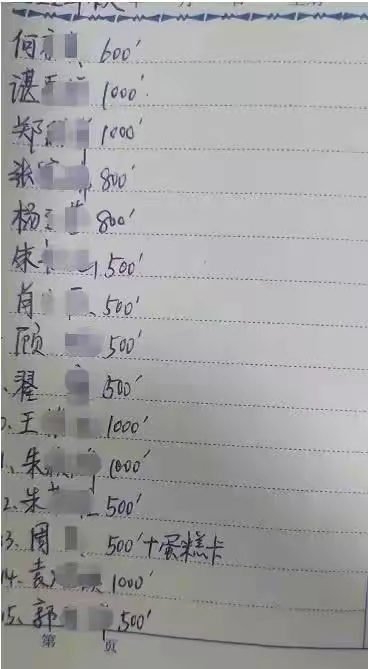 何 600'
谌 1000'
郑 1000'
张 800'
杨 800'
朱 500'
肖 500'
顾 500'
翟 500'
王 1000'
1、朱 1000'
2、朱 500'
13、周 500'+蛋糕卡
14、袁 1000'
15、郭 500'
第 页